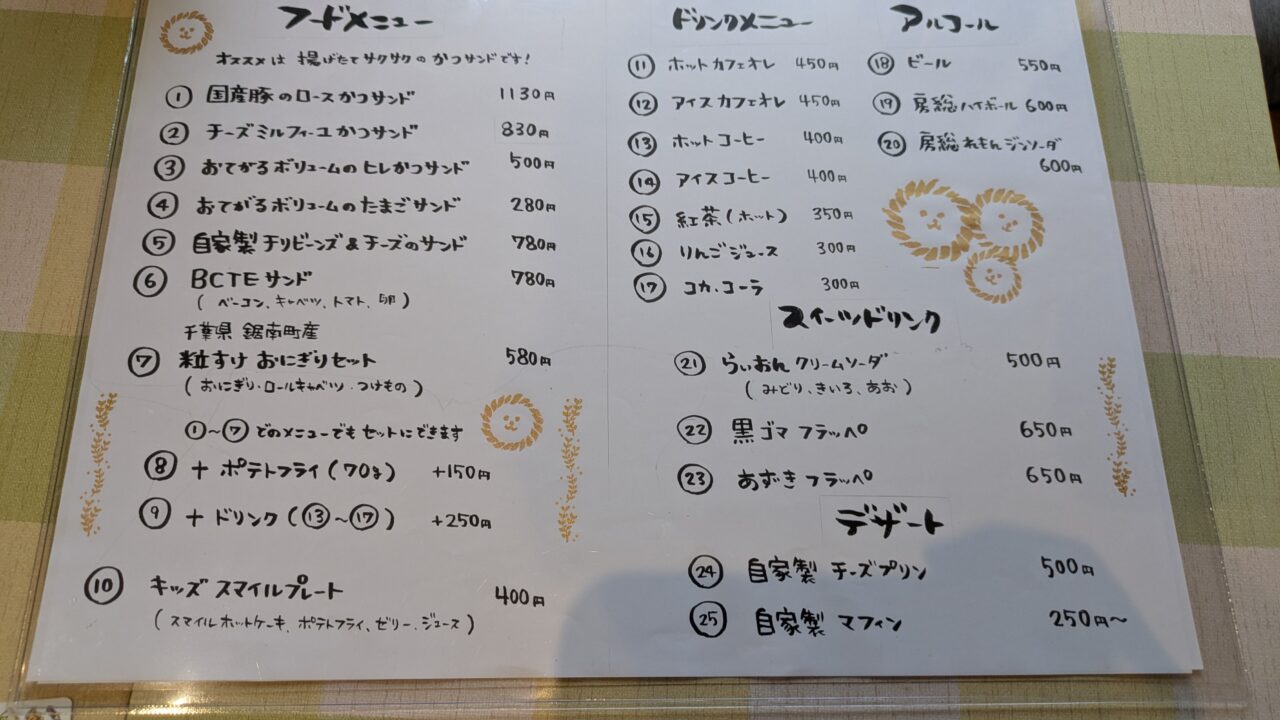 フードメニュー
オススメは 揚げたてサクサクの かつサンドです!
① 国産豚のロースかつサンド 1130円
② チーズミルフィーユかつサンド 830円
③ おてがるボリュームのヒレかつサンド 500円
④ おてがるボリュームのたまごサンド 280円
⑤ 自家製チリビーンズ&チーズのサンド 780円
⑥ BCTEサンド 780円
(ベーコン、キャベツ、トマト、卵)
千葉県 鋸南町産
⑦ 粒すけ おにぎりセット 580円
(おにぎり・ロールキャベツ・つけもの)
①〜⑦ どのメニューでも セットにできます
⑧ + ポテトフライ(70g) +150円
⑨ + ドリンク(⑬〜⑰) +250円
⑩ キッズ スマイルプレート 400円
(スマイルホットケーキ、ポテトフライ、ゼリー、ジュース)
ドリンクメニュー
⑪ ホットカフェオレ 450円
⑫ アイスカフェオレ 450円
⑬ ホットコーヒー 400円
⑭ アイスコーヒー 400円
⑮ 紅茶(ホット) 350円
⑯ りんごジュース 300円
⑰ コカ・コーラ 300円
アルコール
⑱ ビール 550円
⑲ 房総ハイボール 600円
⑳ 房総れもんジンソーダ
600円
スイーツドリンク
㉑ らぃおんクリームソーダ 500円
(みどり、きいろ、あお)
㉒ 黒ゴマフラッペ 650円
㉓ あずきフラッペ 650円
デザート
㉔ 自家製 チーズプリン 500円
㉕ 自家製 マフィン 250円〜